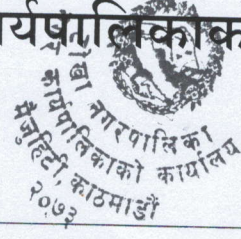 र्यपालिकाक
नगरपालिका
कार्यपालिकाको कार्यालय
मैजुहिटी, काठमाडौं
२०७३